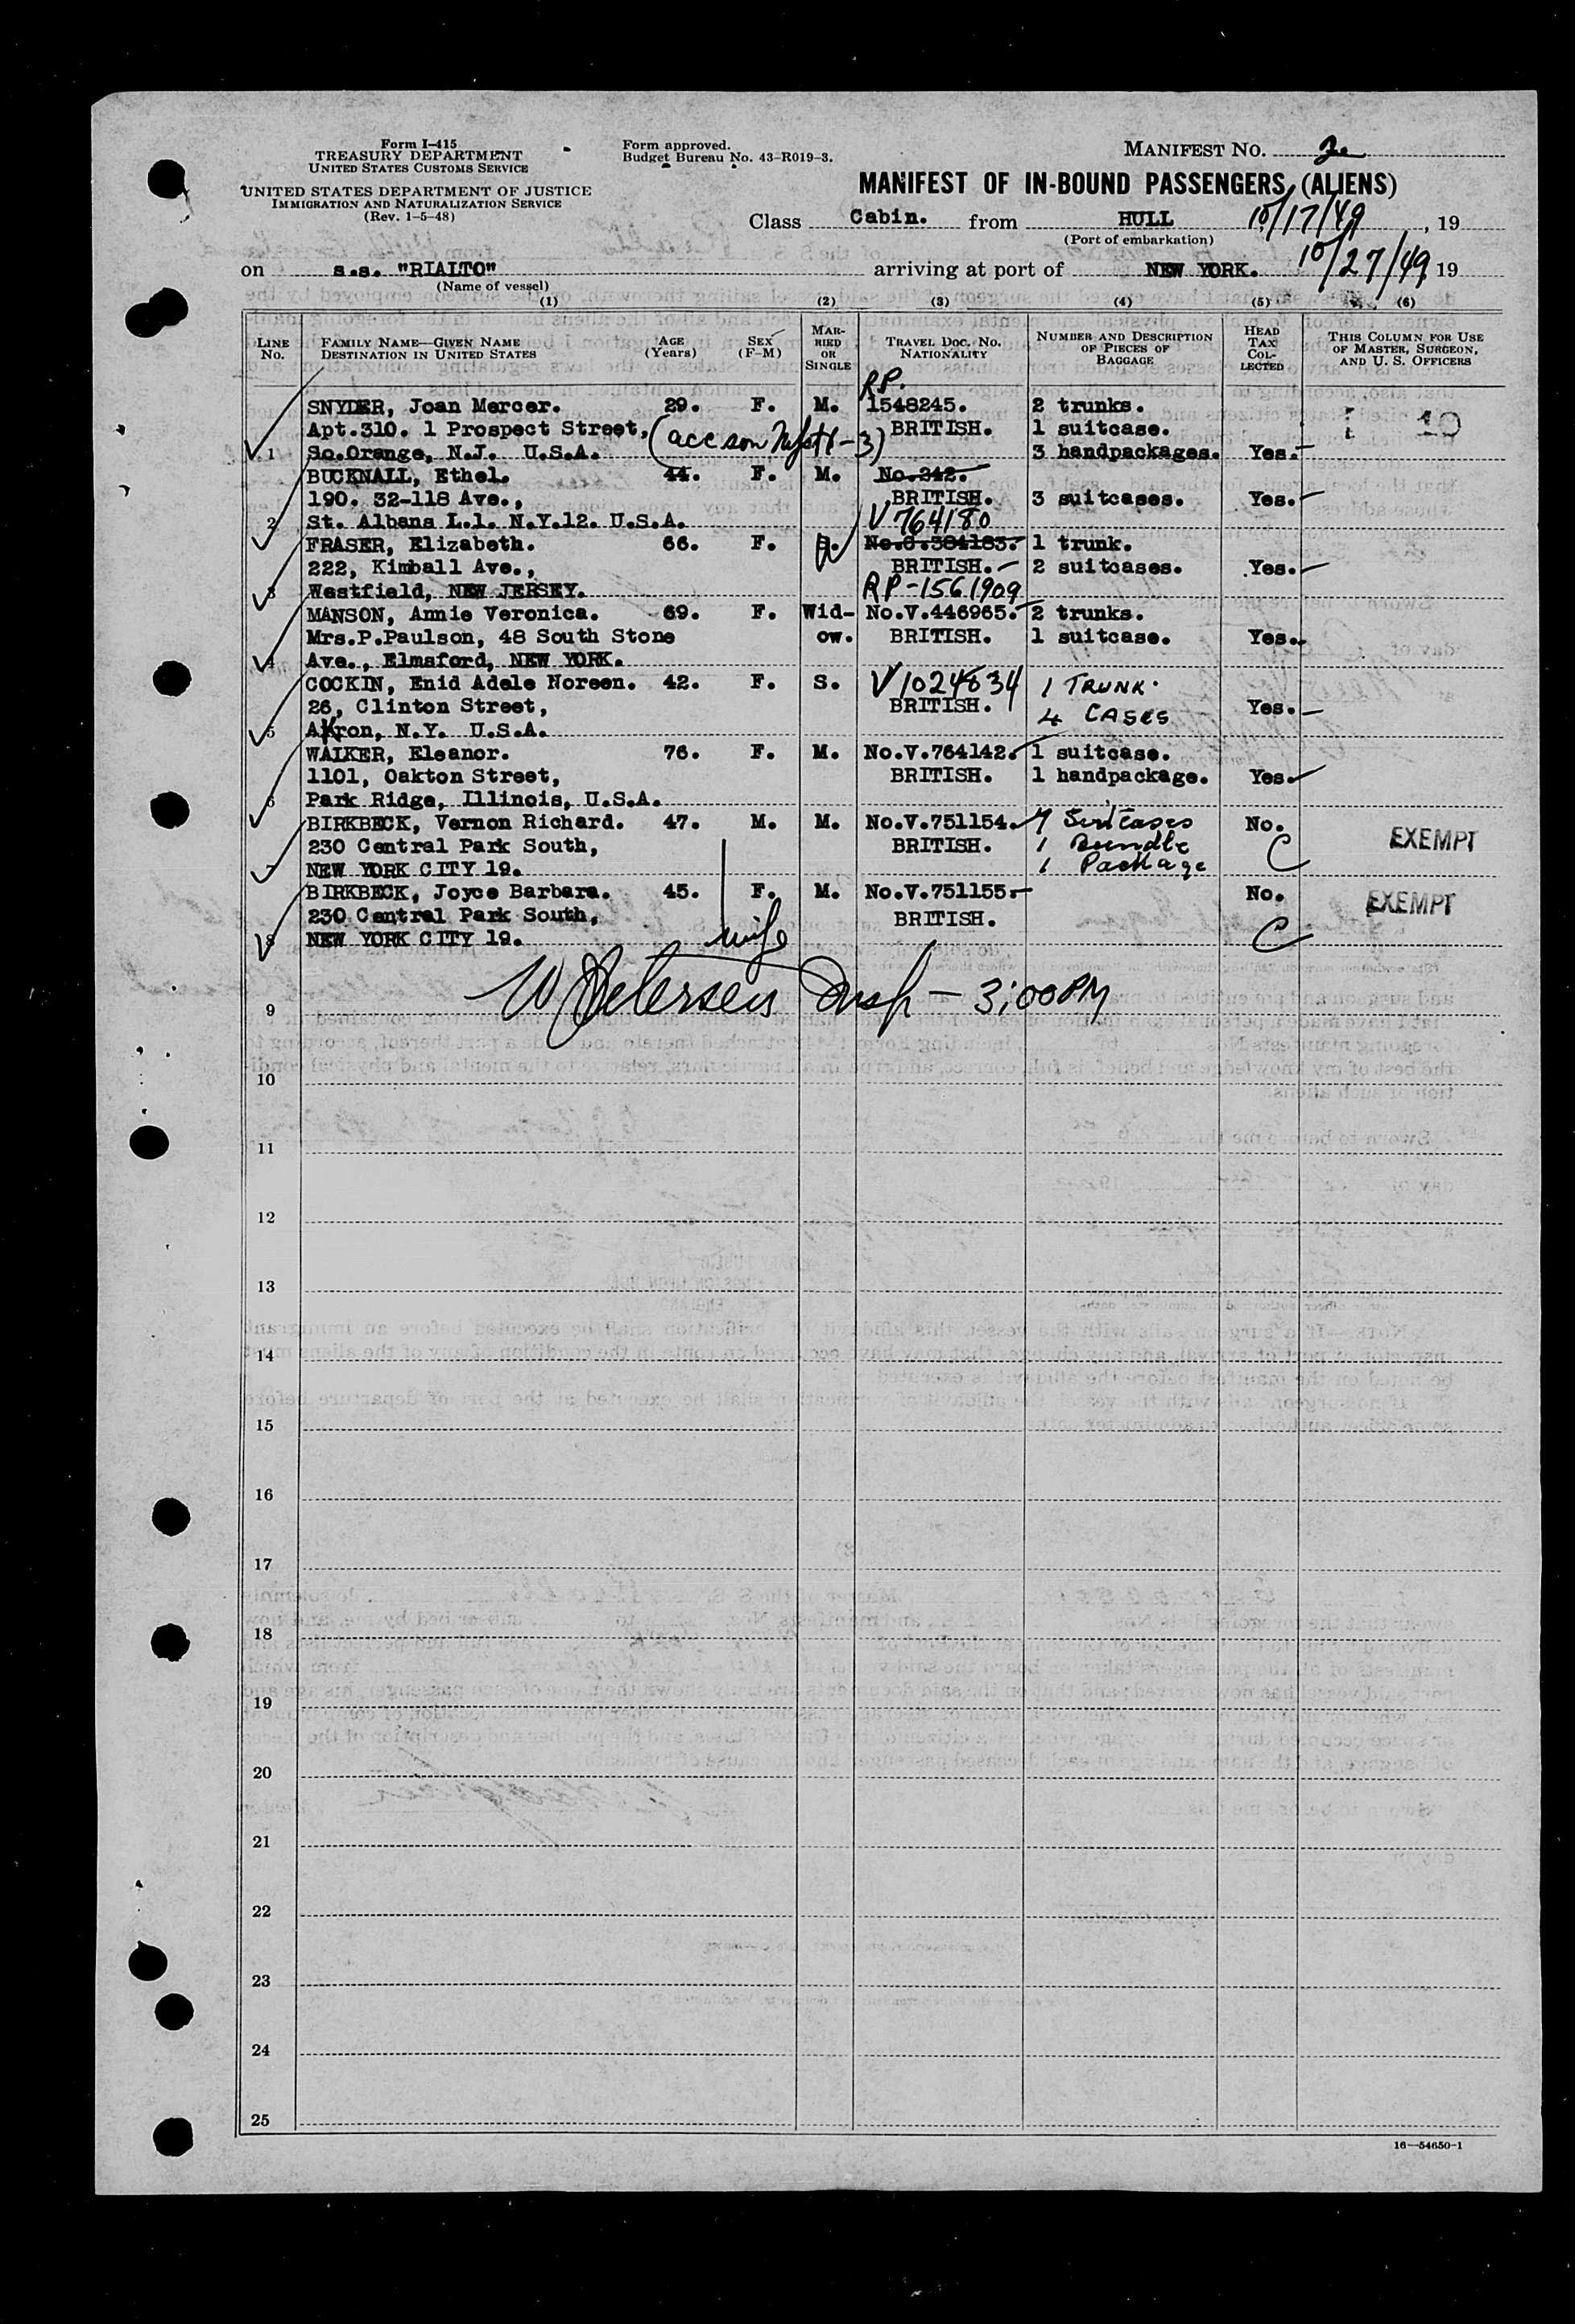 Form I-415
TREASURY DEPARTMENT
UNITED STATES CUSTOMS SERVICE
UNITED STATES DEPARTMENT OF JUSTICE
IMMIGRATION AND NATURALIZATION SERVICE
(Rev. 1-5-48)
Form approved.
Budget Bureau No. 43-R019-3.
MANIFEST NO. 2
MANIFEST OF IN-BOUND PASSENGERS (ALIENS)
Class Cabin. from HULL 10/17/49, 19
(Port of embarkation)
on s.s. "RIALTO" arriving at port of NEW YORK. 10/27/49, 19
(Name of vessel)
(1) (2) (3) (4) (5) (6)
LINE No. FAMILY NAME—GIVEN NAME DESTINATION IN UNITED STATES AGE (Years) SEX (F-M) MARRIED OR SINGLE TRAVEL DOC. NO. NATIONALITY NUMBER AND DESCRIPTION OF PIECES OF BAGGAGE HEAD TAX COLLECTED THIS COLUMN FOR USE OF MASTER, SURGEON, AND U. S. OFFICERS
RP.
SNYDER, Joan Mercer. 29. F. M. 1548245. 2 trunks.
Apt.310. 1 Prospect Street, BRITISH. 1 suitcase. 10
1 So.Orange, N.J. U.S.A. (acc son 3) 3 handpackages. Yes.
BUCKNALL, Ethel. 44. F. M. No.242.
190. 32-118 Ave., BRITISH. 3 suitcases. Yes.
2 St. Albans L.1. N.Y.12. U.S.A. V 764180
FRASER, Elizabeth. 66. F. W No.C.384183. 1 trunk.
222, Kimball Ave., BRITISH. 2 suitcases. Yes.
3 Westfield, NEW JERSEY. RP-1561909
MANSON, Annie Veronica. 69. F. Wid- No.V.446965. 2 trunks.
Mrs.P.Paulson, 48 South Stone ow. BRITISH. 1 suitcase. Yes.
4 Ave., Elmsford, NEW YORK.
COCKIN, Enid Adele Noreen. 42. F. S. V 1024634 1 TRUNK.
26, Clinton Street, BRITISH. 4 CASES Yes.
5 Akron, N.Y. U.S.A.
WALKER, Eleanor. 76. F. M. No.V.764142. 1 suitcase.
1101, Oakton Street, BRITISH. 1 handpackage. Yes.
6 Park Ridge, Illinois, U.S.A.
BIRKBECK, Vernon Richard. 47. M. M. No.V.751154. 7 Suitcases No.
230 Central Park South, BRITISH. 1 Bundle C EXEMPT
7 NEW YORK CITY 19. 1 Package
BIRKBECK, Joyce Barbara. 45. F. M. No.V.751155. No. EXEMPT
230 Central Park South, BRITISH.
8 NEW YORK CITY 19. wife C
9 W Petersen Insp - 3:00 PM
10
11
12
13
14
15
16
17
18
19
20
21
22
23
24
25
16—54650-1